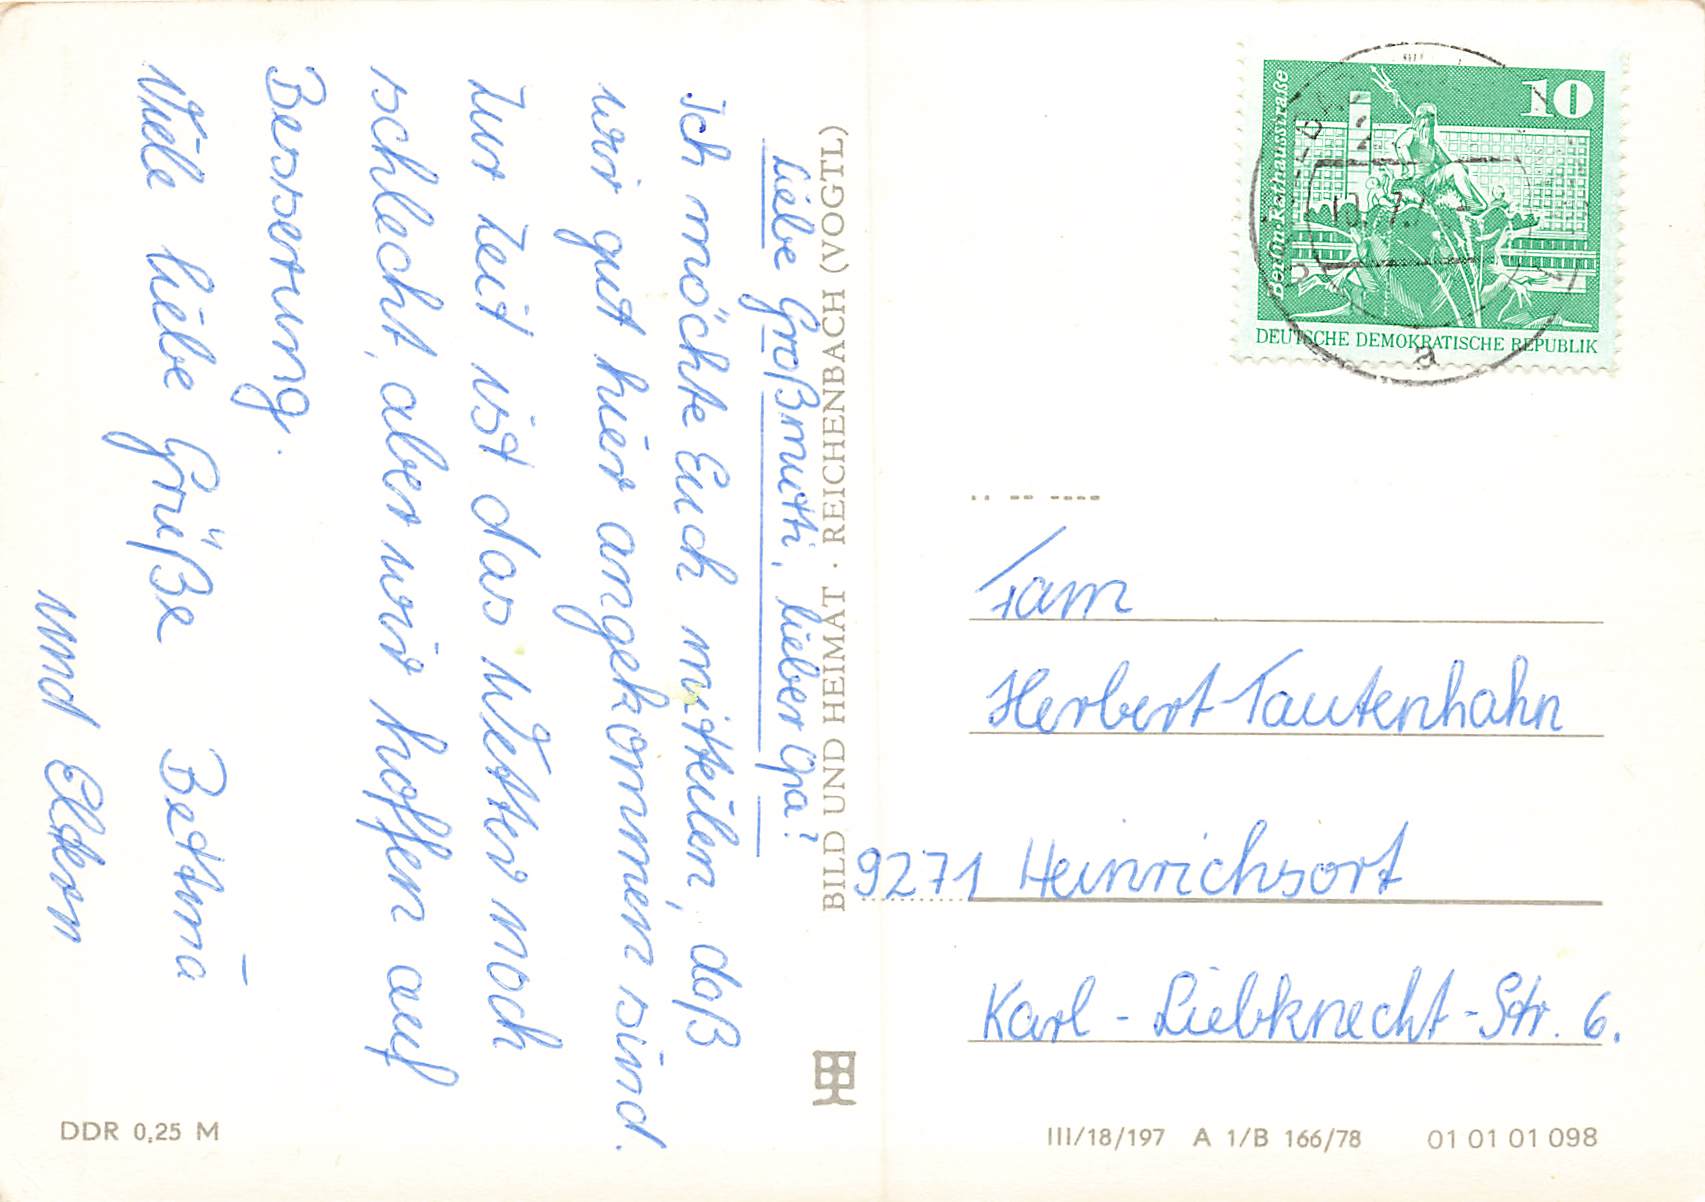 Liebe Großmutti, lieber Opa!
Ich möchte Euch mitteilen, daß
wir gut hier angekommen sind.
Zur Zeit ist das Wetter noch
schlecht, aber wir hoffen auf
Besserung.
Viele liebe Grüße Bettina
und Eltern
DDR 0,25 M
BILD UND HEIMAT · REICHENBACH (VOGTL)
10
Berlin, Rathausstraße
DEUTSCHE DEMOKRATISCHE REPUBLIK
a
Fam
Herbert Tautenhahn
9271 Heinrichsort
Karl-Liebknecht-Str. 6.
III/18/197 A 1/B 166/78 01 01 01 098